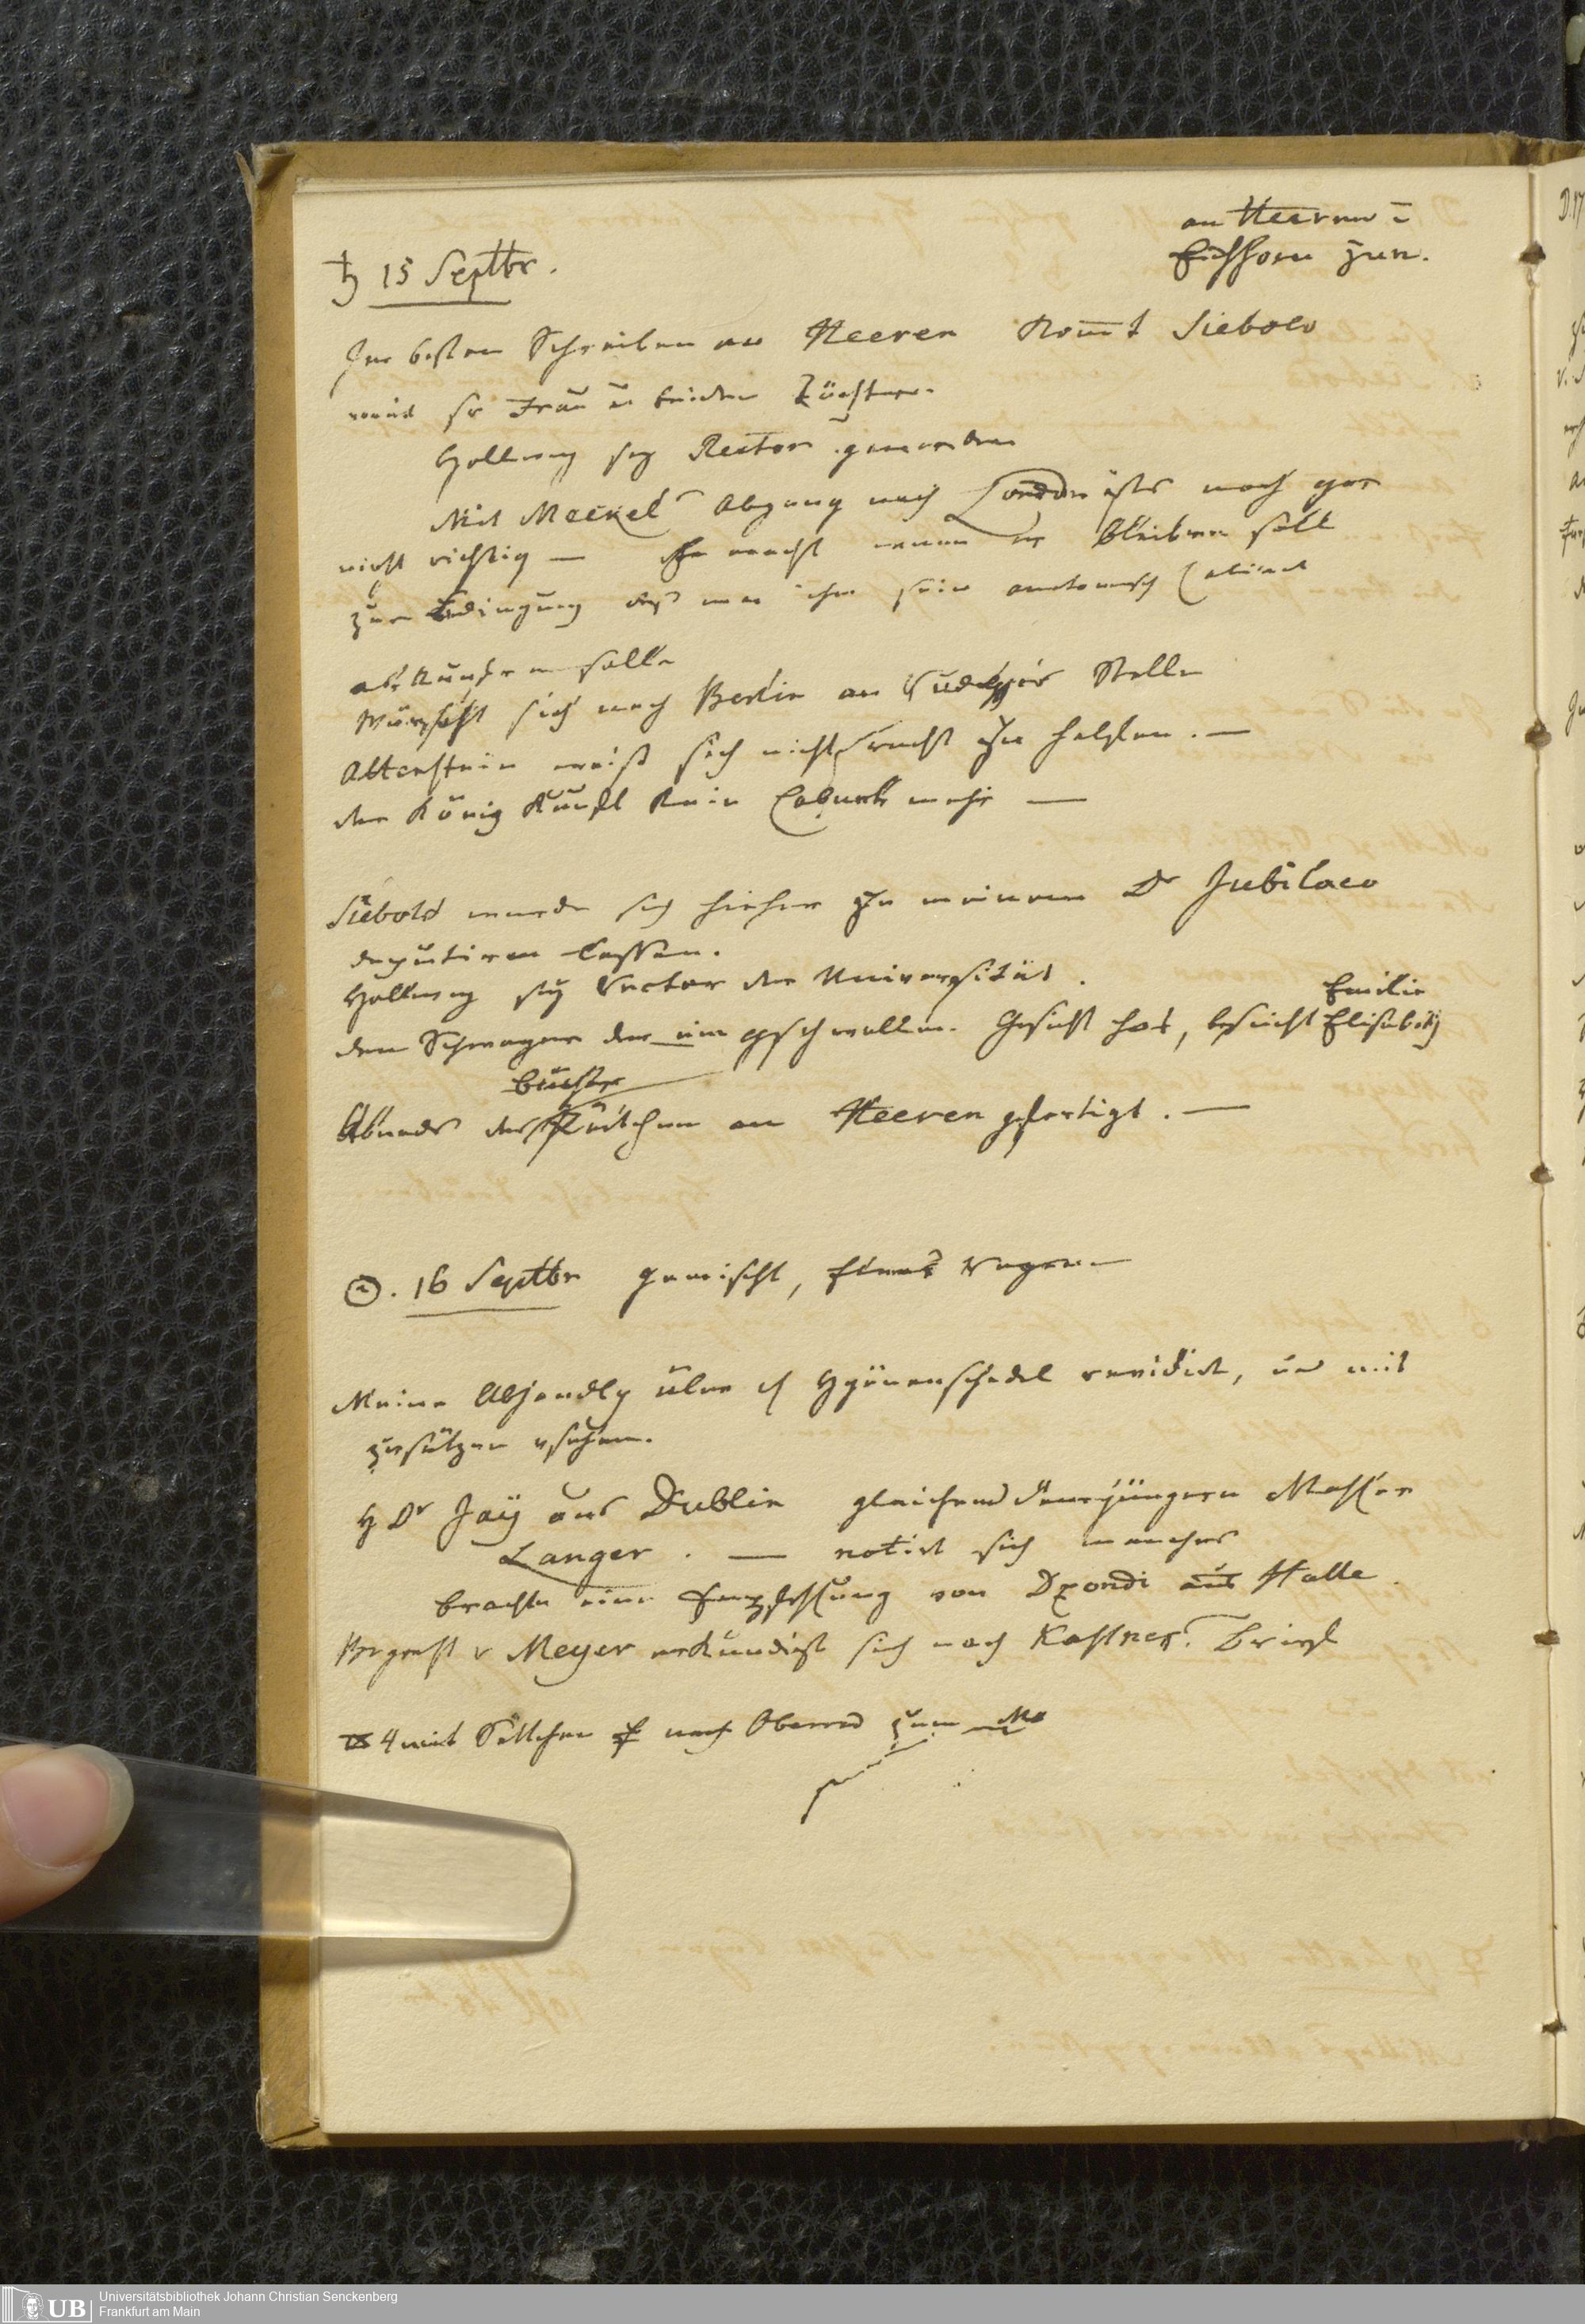 an Heeren u
Eichhorn zun.
♄ 15 Septbr.
Im besten Schreiben an Heeren kom̅t Siebold
nebst sr Frau u beiden Töchter.
Hellweg sey Rector geworden
Mit Meckels Abgang nach London ists noch gar
nicht richtig — Er macht wenn er bleiben soll
zur Bedingung daß man ihm sein anatomisch Cabinet
abkaufen solle
Wünscht sich nach Berlin an Rudolphis Stelle
Altenstein weiß sich nicht recht zu helfen. —
der König kauft kein Cabinet mehr —
Siebold wurde sich hieher zu meinem Dr Jubilaeo
deputiren lassen.
Hellweg sey Rector der Universität.
den Schwager der ein geschwollen Gesicht hat, besucht Elisabeth
Emilie
Bücher
Abends das Kistchen an Heeren gefertigt. —
☉. 16 Septbr gemischt, Regen
Meine Abhandlg über d Hyänenschedel revidirt, und mit
Zusätzen versehen.
H Dr Jaÿ aus Dublin gleichend dem jüngern Maßer
Langer. — notirt sich manches
brachte eine Empfehlung von Dzondi aus Halle.
Bergrath v Meyer erkundigt sich nach Kastners Brief
4 mit Settchen nach Oberrad zum
UB
Universitätsbibliothek Johann Christian Senckenberg
Frankfurt am Main